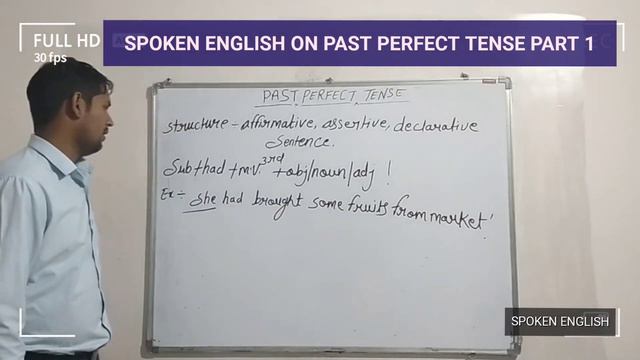 FULL HD
30 fps
SPOKEN ENGLISH ON PAST PERFECT TENSE PART 1
PAST PERFECT TENSE
Structure - affirmative, assertive, declarative
Sentence.
Sub+had+m.v.3rd+obj/noun/adj !
Ex÷ She had brought some fruits from market'
SPOKEN ENGLISH